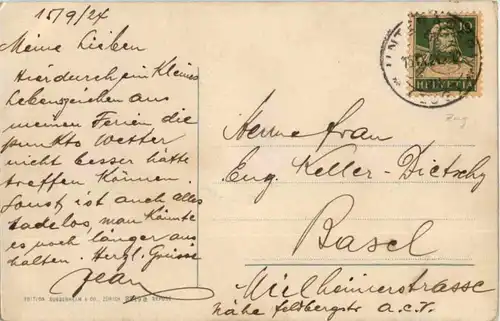 15/9/24
Meine Lieben
Hierdurch ein Kleines
Lebenszeichen aus
meinen Ferien die
punkto Wetter
nicht besser hätte
treffen Können.
Sonst ist auch alles
tadelos, man Könnte
es noch länger aus
halten. Herzl. Grüsse
Jean
10
HELVETIA
Zug
Madame Frau
Eug. Keller-Dietschy
Basel
Mülheimerstrasse
nähe Feldbergstr a.c.V.
EDITION GUGGENHEIM & CO., ZÜRICH